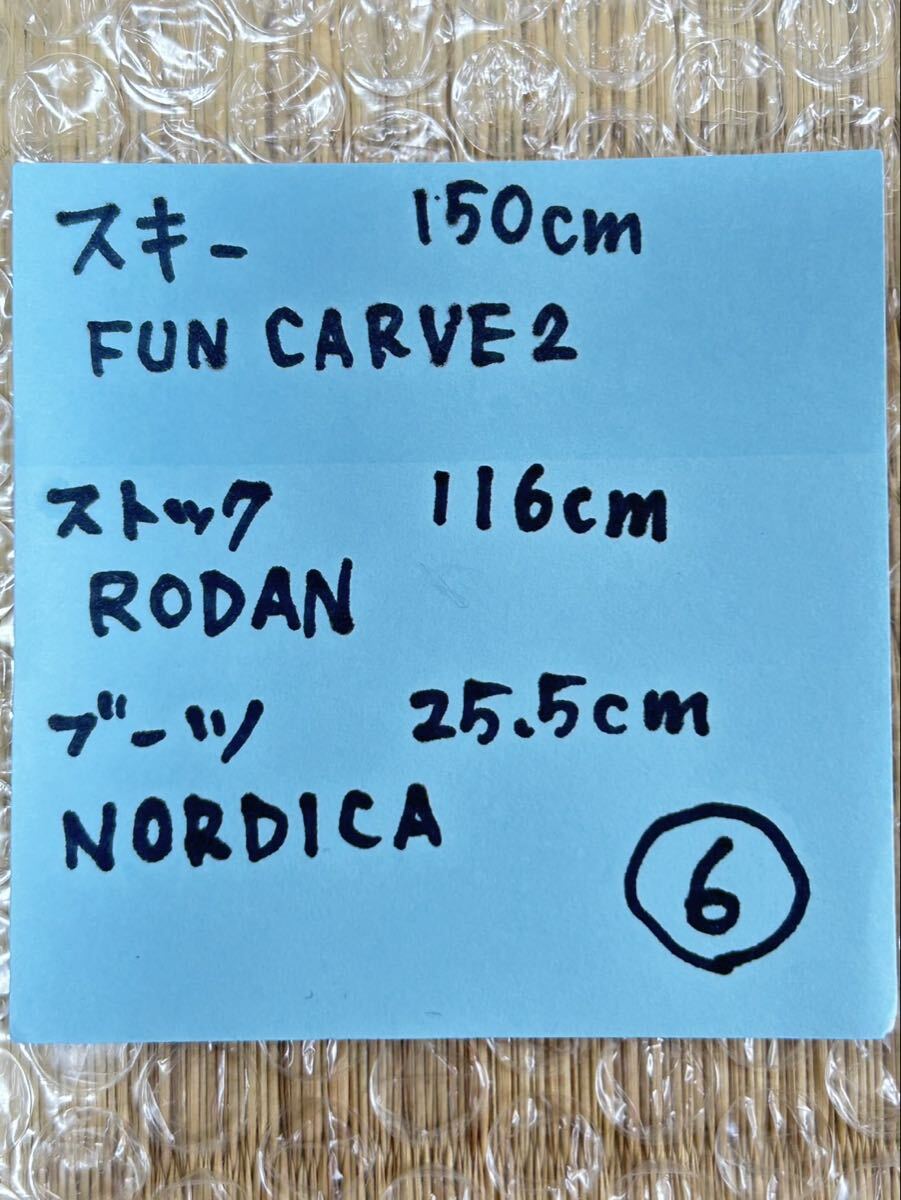 スキー 150cm
FUN CARVE2
ストック 116cm
RODAN
ブーツ 25.5cm
NORDICA
6